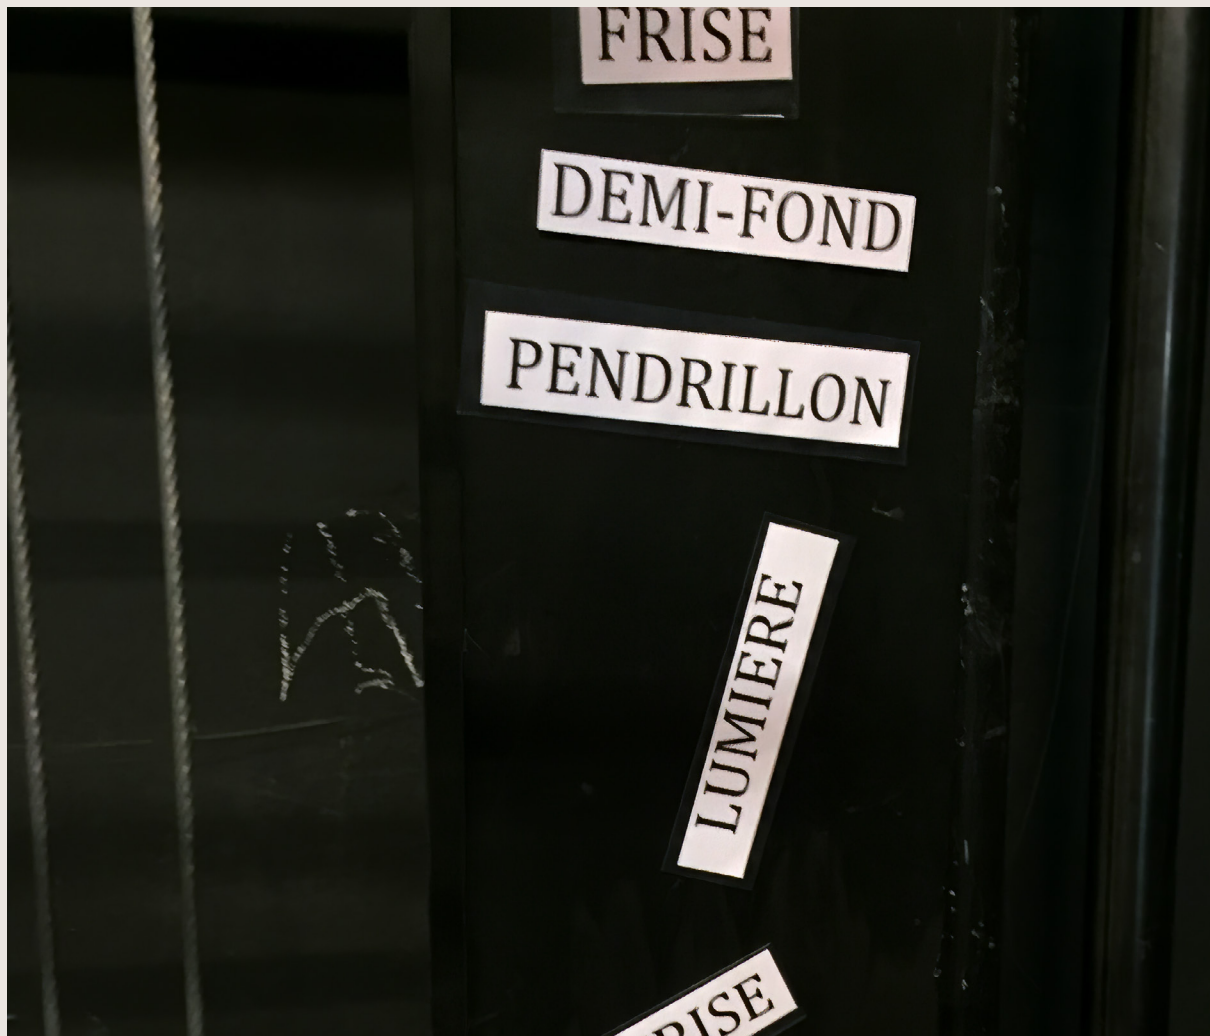 FRISE
DEMI-FOND
PENDRILLON
LUMIERE
RISE